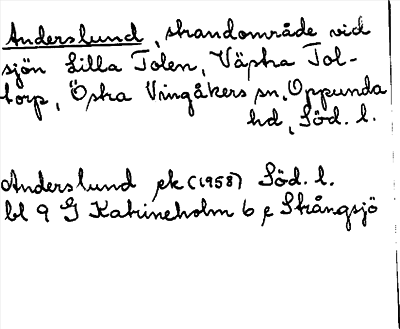 Anderslund, strandområde vid
sjön Lilla Tolen, Västra Tol-
torp, Östra Vingåkers sn, Oppunda
hd, Söd. l.
Anderslund ek (1958) Söd. l.
bl 9 G Katrineholm 6 e Strångsjö